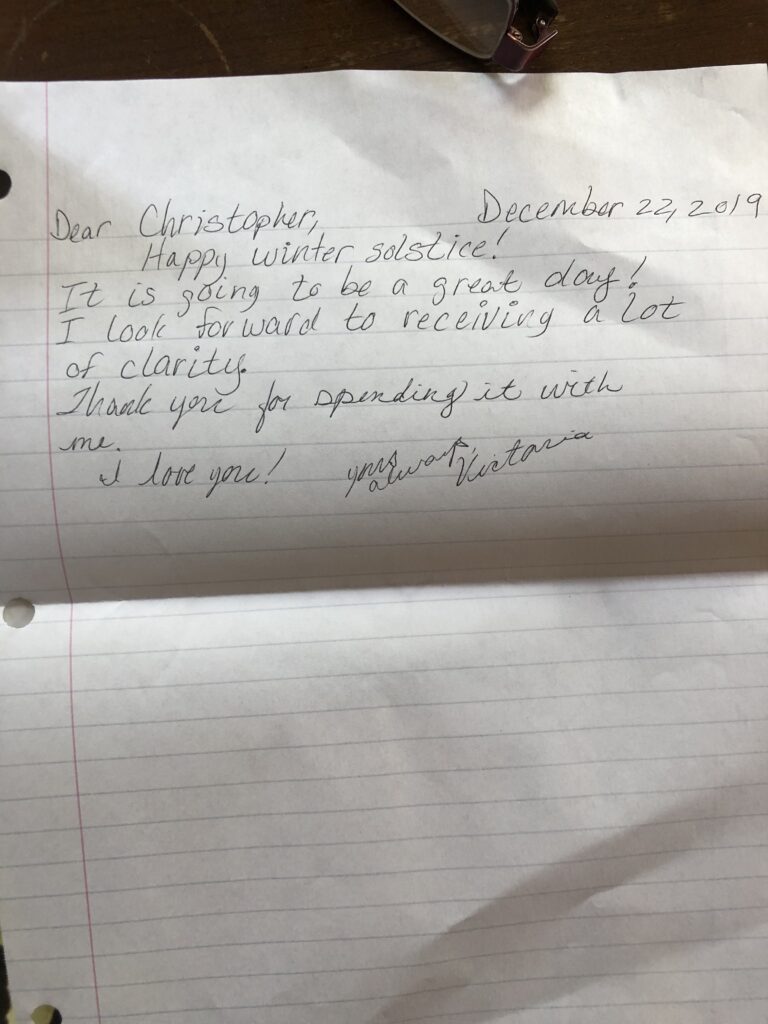 December 22, 2019
Dear Christopher,
Happy winter solstice!
It is going to be a great day!
I look forward to receiving a lot
of clarity.
Thank you for spending it with
me.
I love you!
yours
always,
Victoria